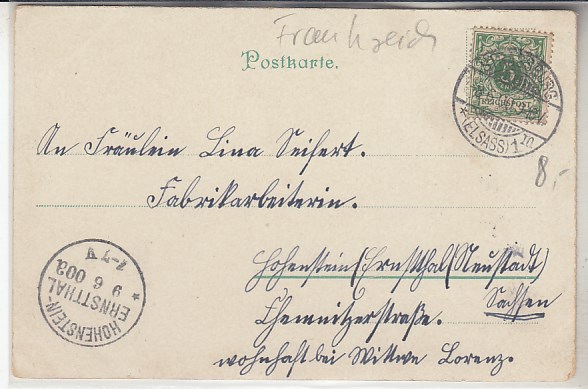 Frankreich
Postkarte.
An Fräulein Lina Seifert.
Fabrikarbeiterin.
Hohenstein (Ernstthal (Neustadt)
Sachsen
Chemnitzerstraße.
wohnhaft bei Wittwe Lorenz.
8,-
HOHENSTEIN-
ERNSTTHAL
9 6 00
V
(ELSASS) 1
5